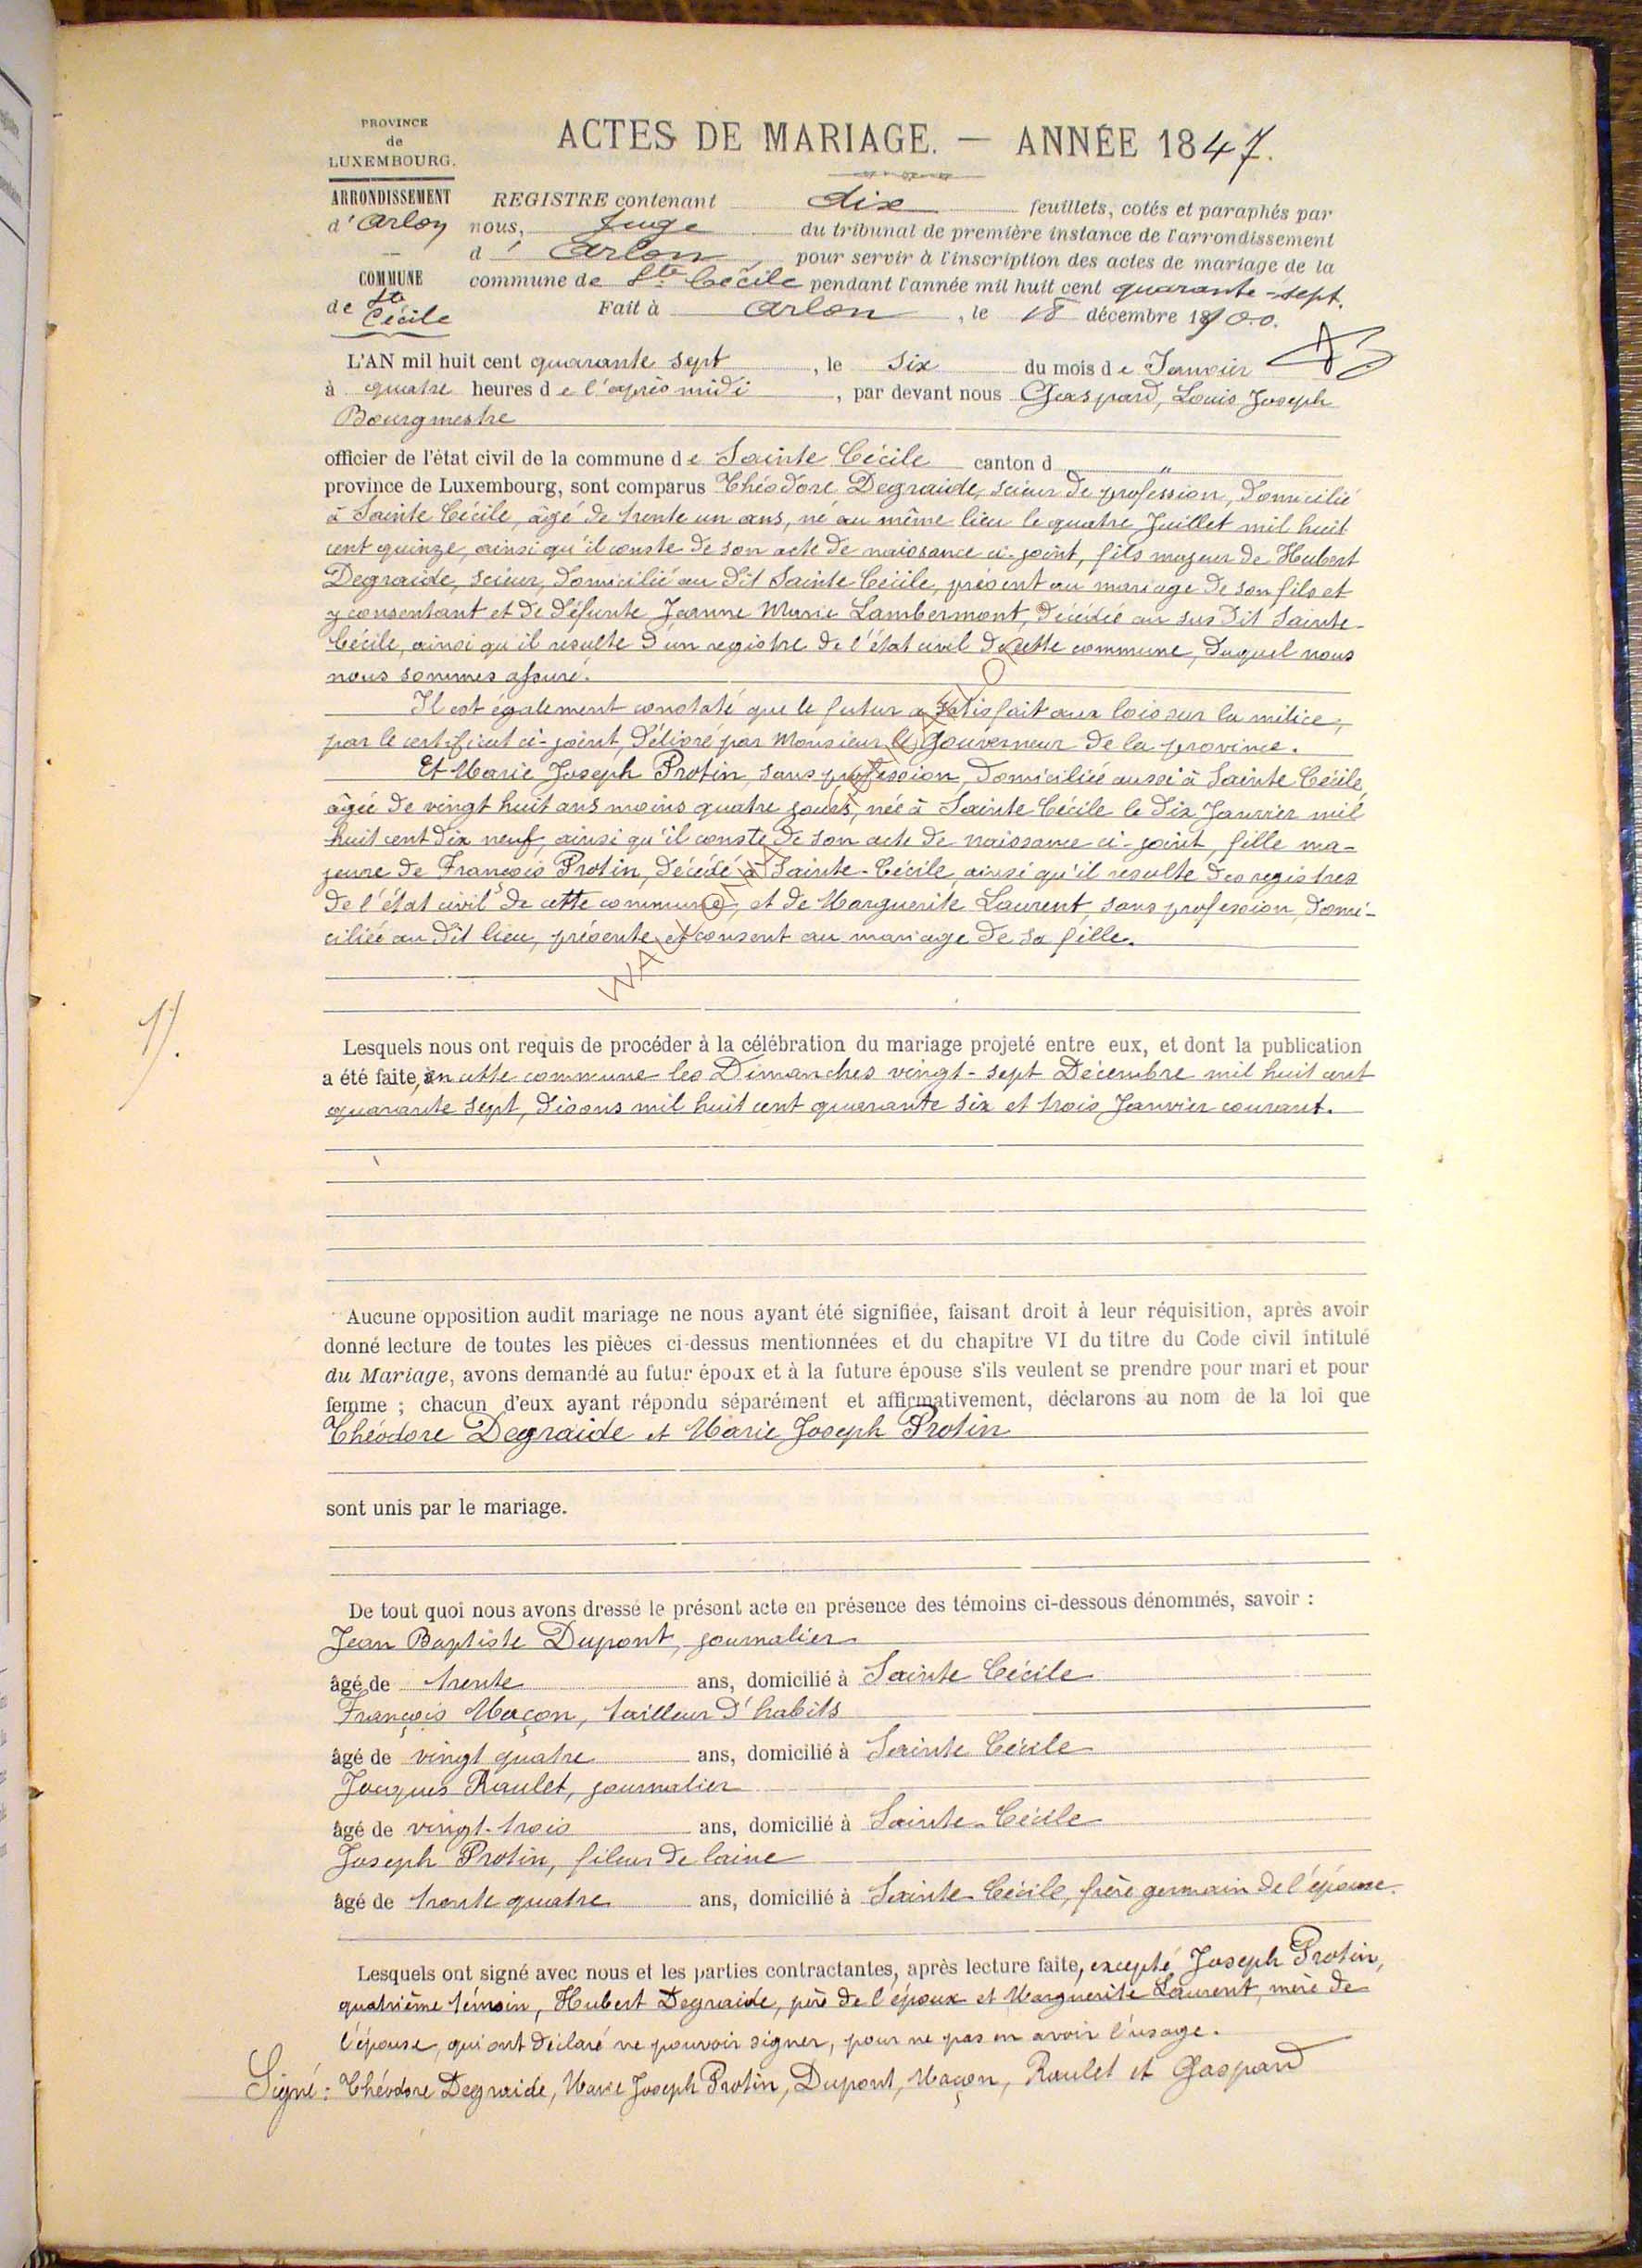 PROVINCE
de
LUXEMBOURG.
ACTES DE MARIAGE. — ANNÉE 1847.
ARRONDISSEMENT
d'Arlon
COMMUNE
de Ste
Cécile
REGISTRE contenant dix feuillets, cotés et paraphés par
nous, Juge du tribunal de première instance de l'arrondissement
d'Arlon, pour servir à l'inscription des actes de mariage de la
commune de Ste Cécile pendant l'année mil huit cent quarante-sept.
Fait à Arlon, le 18 décembre 1900.
L'AN mil huit cent quarante sept, le six du mois de Janvier
à quatre heures de l'après midi, par devant nous Gaspard, Louis Joseph
Bourgmestre
officier de l'état civil de la commune de Sainte Cécile canton d "
province de Luxembourg, sont comparus Théodore Degraide, scieur de profession, domicilié
à Sainte Cécile, âgé de trente un ans, né au même lieu le quatre Juillet mil huit
cent quinze, ainsi qu'il conste de son acte de naissance ci-joint, fils majeur de Hubert
Degraide, scieur, domicilié au dit Sainte Cécile, présent au mariage de son fils et
y consentant et de défunte Jeanne Marie Lambermont, décédée au sus dit Sainte-
Cécile, ainsi qu'il resulte d'un registre de l'état civil de cette commune, duquel nous
nous sommes assuré.
Il est également constaté que le futur a satisfait aux lois sur la milice,
par le certificat ci-joint, délivré par Monsieur le Gouverneur de la province.
Et Marie Joseph Protin, sans profession, domiciliée aussi à Sainte Cécile,
âgée de vingt huit ans moins quatre jours, née à Sainte Cécile le dix Janvier mil
huit cent dix neuf, ainsi qu'il conste de son acte de naissance ci-joint, fille ma-
jeure de François Protin, décédé à Sainte-Cécile, ainsi qu'il resulte des registres
de l'état civil de cette commune, et de Marguerite Laurent, sans profession, domi-
ciliée au dit lieu, présente et consent au mariage de sa fille.
1).
Lesquels nous ont requis de procéder à la célébration du mariage projeté entre eux, et dont la publication
a été faite, en cette commune les Dimanches vingt-sept Décembre mil huit cent
quarante sept, disons mil huit cent quarante six et trois Janvier courant.
Aucune opposition audit mariage ne nous ayant été signifiée, faisant droit à leur réquisition, après avoir
donné lecture de toutes les pièces ci-dessus mentionnées et du chapitre VI du titre du Code civil intitulé
du Mariage, avons demandé au futur époux et à la future épouse s'ils veulent se prendre pour mari et pour
femme ; chacun d'eux ayant répondu séparément et affirmativement, déclarons au nom de la loi que
Théodore Degraide et Marie Joseph Protin
sont unis par le mariage.
De tout quoi nous avons dressé le présent acte en présence des témoins ci-dessous dénommés, savoir :
Jean Baptiste Dupont, journalier
âgé de trente ans, domicilié à Sainte Cécile
François Maçon, tailleur d'habits
âgé de vingt quatre ans, domicilié à Sainte Cécile
Jacques Raulet, journalier
âgé de vingt-trois ans, domicilié à Sainte-Cécile
Joseph Protin, fileur de laine
âgé de trente quatre ans, domicilié à Sainte-Cécile, frère germain de l'épouse.
Lesquels ont signé avec nous et les parties contractantes, après lecture faite, excepté Joseph Protin,
quatrième témoin, Hubert Degraide, père de l'époux et Marguerite Laurent, mère de
l'épouse, qui ont déclaré ne pouvoir signer, pour ne pas en avoir l'usage.
Signé : Théodore Degraide, Marie Joseph Protin, Dupont, Maçon, Raulet et Gaspard